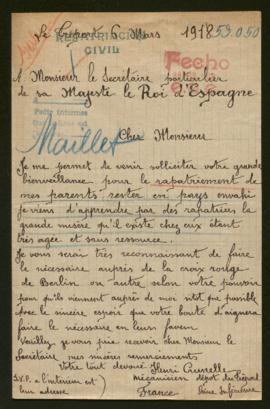 Le Tréport 6 Mars 1918
53.050
REPATRIACION
CIVIL
Fecho
A Monsieur le Secrétaire particulier
de sa Majesté le Roi d'Espagne
Pedir informes
Maillet
Cher Monsieur
Je me permet de venir solliciter votre grande
bienveillance pour le rapatriement de
mes parents, rester en pays envahi
je viens d'apprendre par des rapatriées la
grande misère qu'il existe chez eux étant
très agée et sans ressource.
Je vous serai très reconnaissant de faire
le nécessaire auprès de la croix rouge
de Berlin ou autre selon votre pouvoir
pour qu'ils viennent auprès de moi sitôt que possible
Avec le sincère espoir que votre bonté d'aignera
faire le nécessaire en leur faveur
Veuillez je vous prie recevoir cher Monsieur le
Secrétaire mes sincères remerciements
Votre tout dévoué Henri
S.V.P. à l'intérieur mécanicien dépot du Tréport
leur adresse France Seine Inférieure